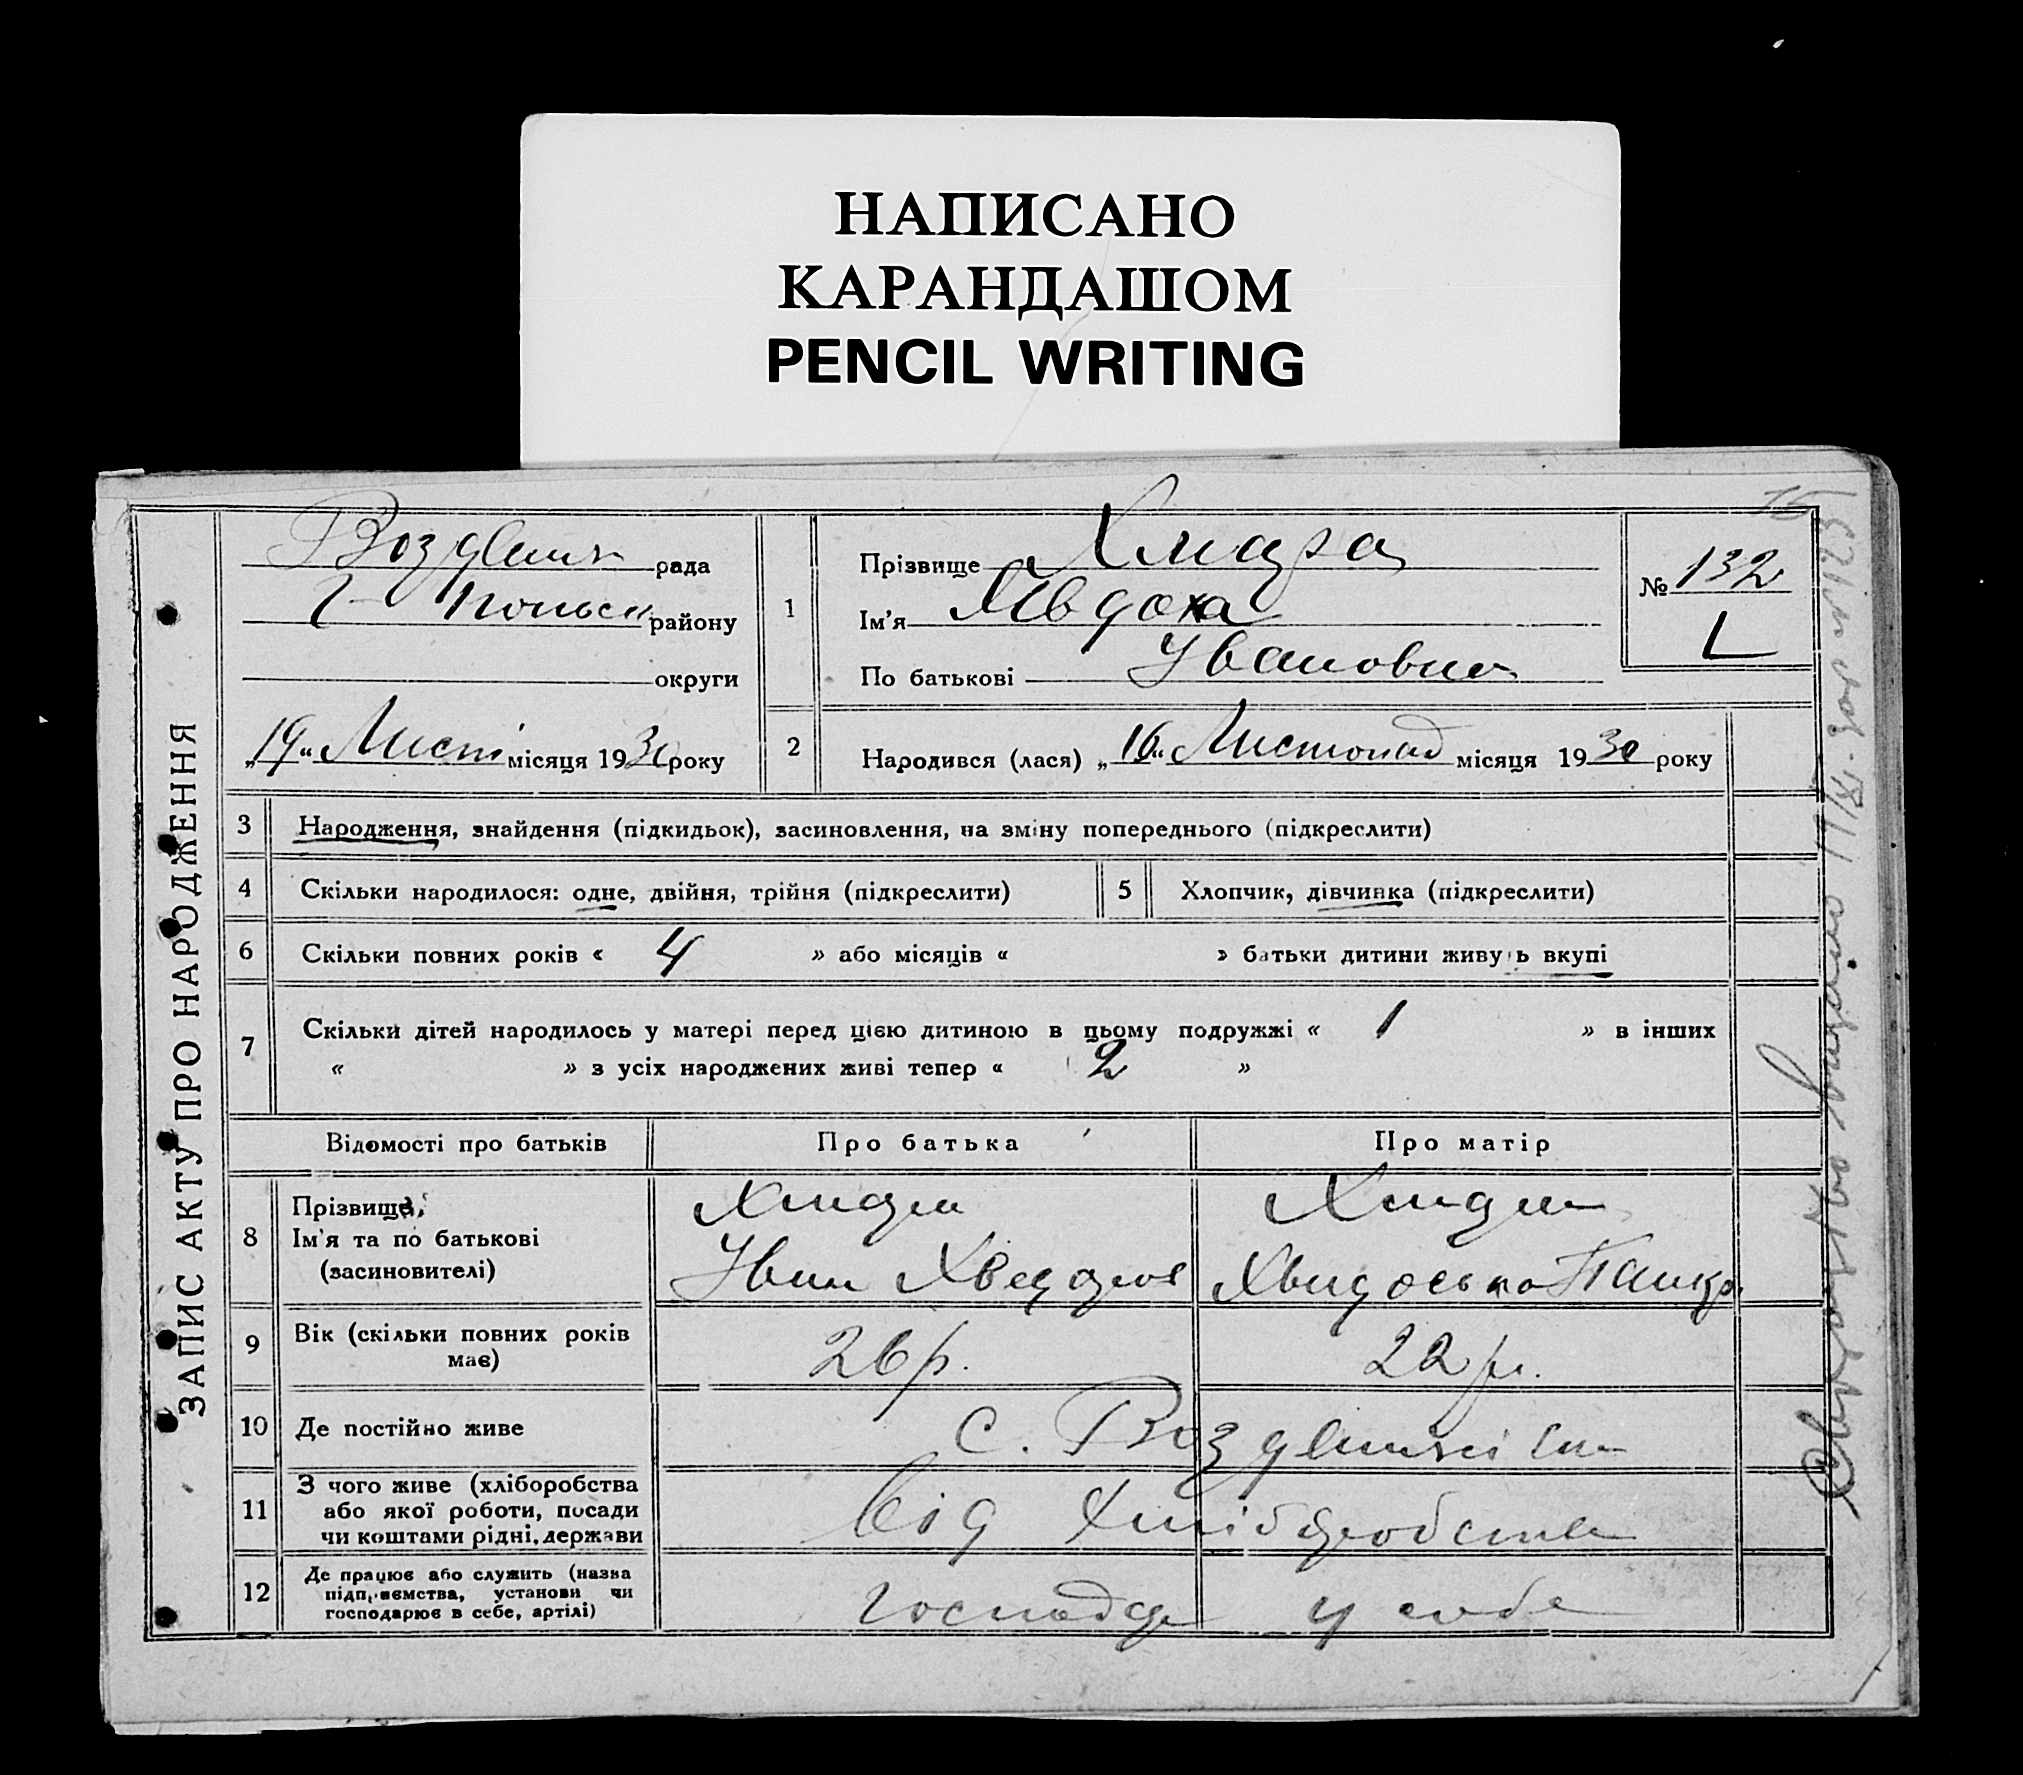 НАПИСАНО
КАРАНДАШОМ
PENCIL WRITING
15
ЗАПИС АКТУ ПРО НАРОДЖЕННЯ
рада
району
округи
„19“ Лист місяця 1930 року
1
Прізвище Хмара
Ім'я Явдоха
По батькові Ивановна
№ 132
2
Народився (лася) „16“ Листопад місяця 1930 року
3 Народження, знайдення (підкидьок), засиновлення, на зміну попереднього (підкреслити)
4 Скільки народилося: одне, двійня, трійня (підкреслити)
5 Хлопчик, дівчинка (підкреслити)
6 Скільки повних років « 4 » або місяців « » батьки дитини живуть вкупі
7 Скільки дітей народилось у матері перед цією дитиною в цьому подружжі « 1 » в інших
« » з усіх народжених живі тепер « 2 »
Відомості про батьків
Про батька
Про матір
8 Прізвище,
Ім'я та по батькові
(засиновителі)
Хмара
Иван
Хмара
9 Вік (скільки повних років
має)
26 р.
22 р.
10 Де постійно живе
с.
11 З чого живе (хліборобства
або якої роботи, посади
чи коштами рідні, держави
від хліборобства
12 Де працює або служить (назва
підприємства, установи чи
господарює в себе, артілі)
господар у себе